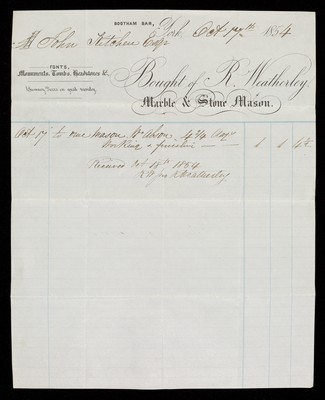 BOOTHAM BAR,
York, Oct 17th 1854
John Kitchen Esqr
FONTS,
Monuments, Tombs, Headstones &c.
Chimney Pieces in great variety.
Bought of R. Weatherley,
Marble & Stone Mason.
Oct 17 to one Mason 4¾ days
Working & 1 1 4½
Received Oct 18th 1854
R Weatherley